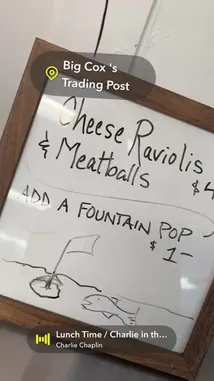 Big Cox 's
Trading Post
Cheese Raviolis
& Meatballs
$4
ADD A FOUNTAIN POP
$1-
Lunch Time / Charlie in th...
Charlie Chaplin